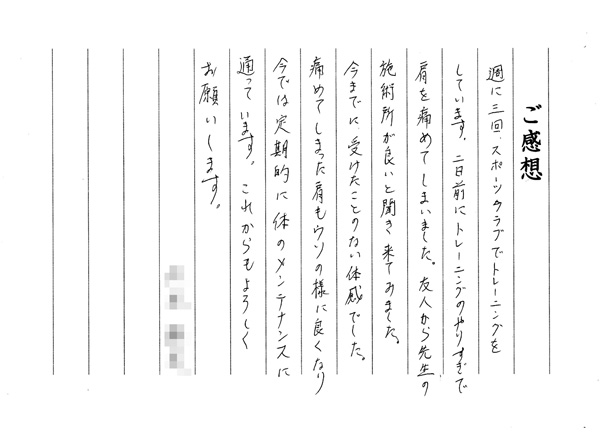 ご感想
週に三回、スポーツクラブでトレーニングを
しています。二日前にトレーニングのやりすぎで
肩を痛めてしまいました。友人から先生の
施術所が良いと聞き来てみました。
今までに、受けたことのない体感でした。
痛めてしまった肩もウソの様に良くなり
今では定期的に体のメンテナンスに
通っています。これからもよろしく
お願いします。